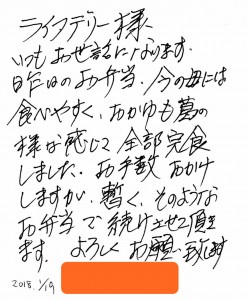 ライフデリー様
いつもお世話になります。
昨日のお弁当、今の母には
食べやすく、おかゆも葛の
様な感じで全部完食
しました。お手数おかけ
しますが、暫く、そのような
お弁当で続けさせて頂き
ます。よろしくお願い致します
2018.1/19